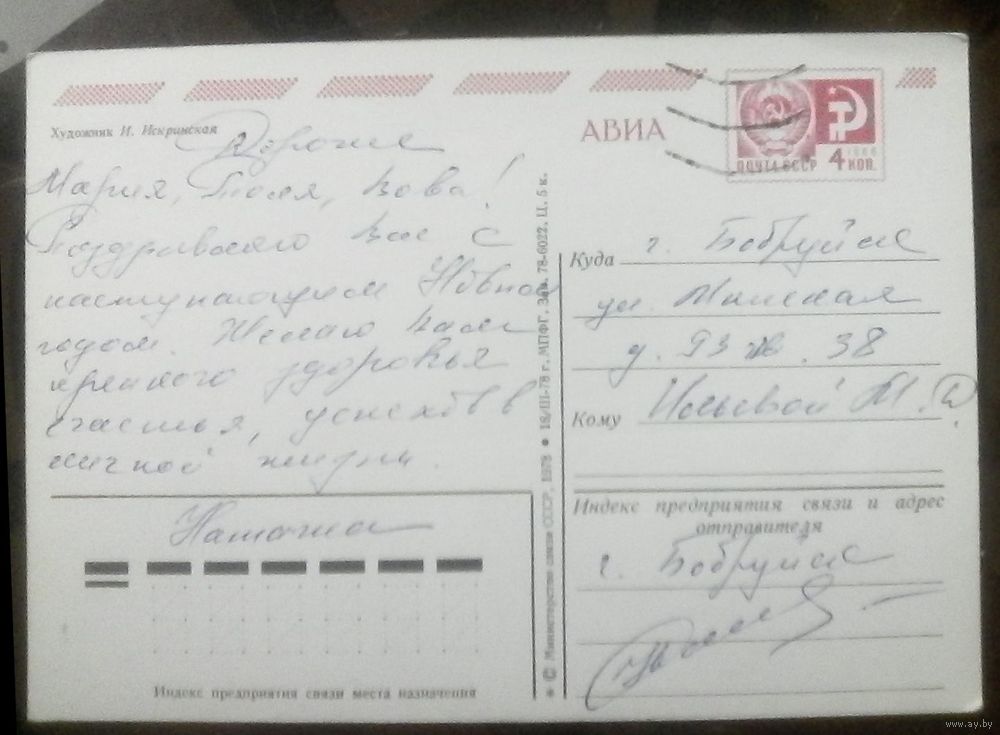 Художник И. Искринская
Дорогие
Мария, Толя, Вова!
Поздравляю Вас с
наступающим Новым
годом. Желаю Вам
крепкого здоровья
счастья, успехов в
личной жизни.
Наташа
Индекс предприятия связи места назначения
© Министерство связи СССР, 1978 • 18/III-78 г. МПФГ. Зак. 78-6022. Ц. 5 к.
АВИА
ПОЧТА СССР 4 КОП.
1966
Куда г. Бобруйск
ул. Минская
д. 93 кв. 38
Кому М.
Индекс предприятия связи и адрес
отправителя
г. Бобруйск
www.ay.by